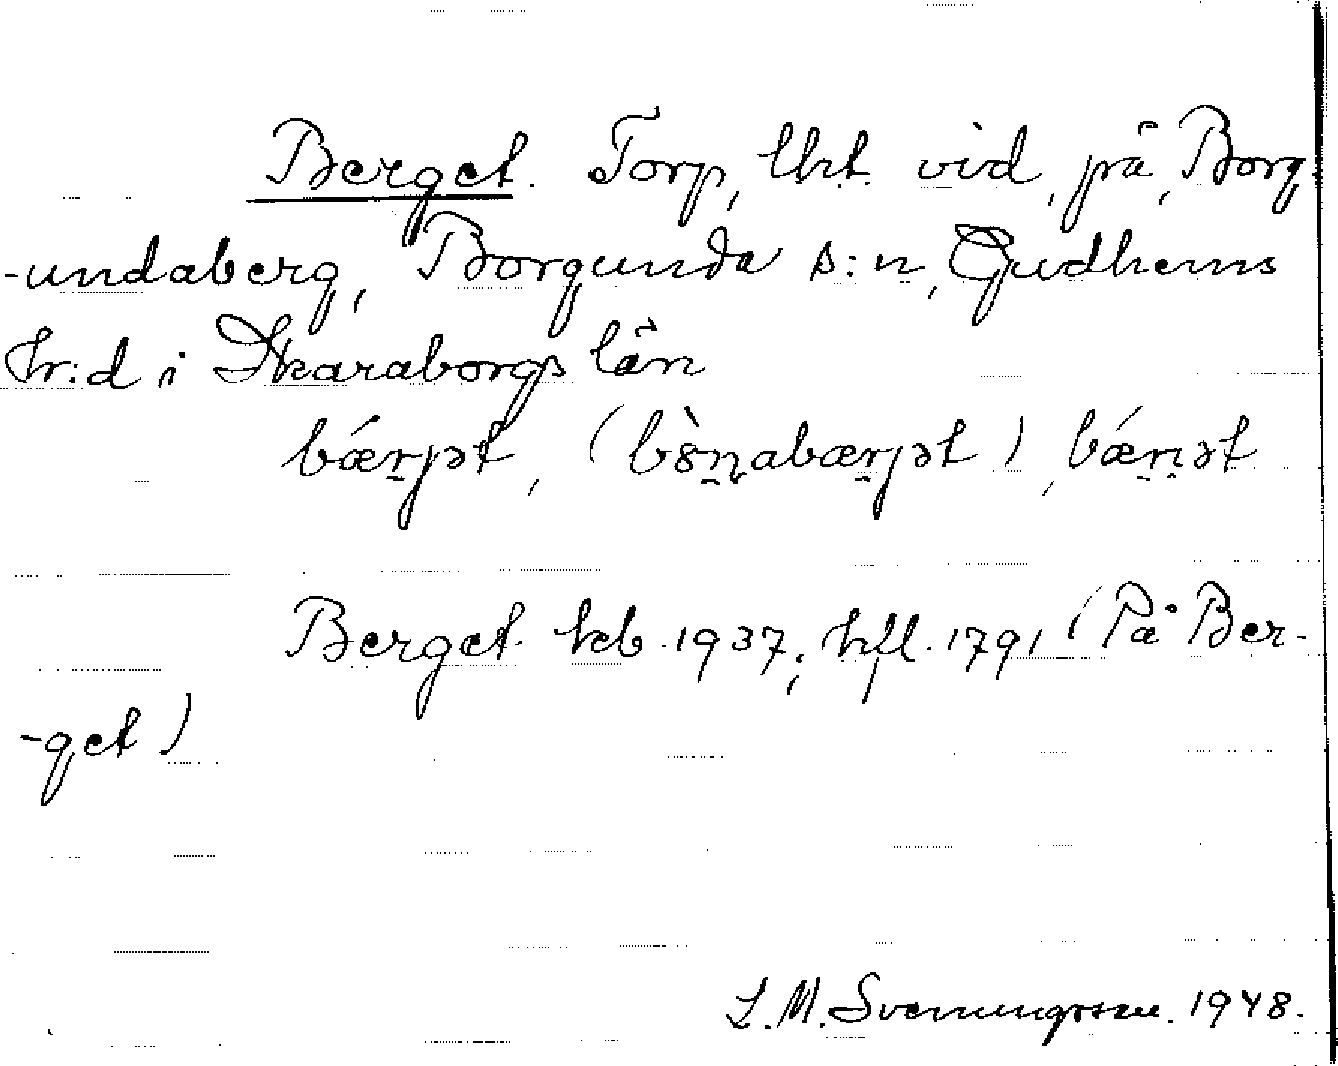 Berget. Torp, lht. vid, på, Borg-
-undaberg, Borgunda s:n, Gudhems
hr:d i Skaraborgs län
bǽrjət, (
Berget kb. 1937; hfl. 1791 (På Ber-
-get)
L. M. Svenungsson. 1948.